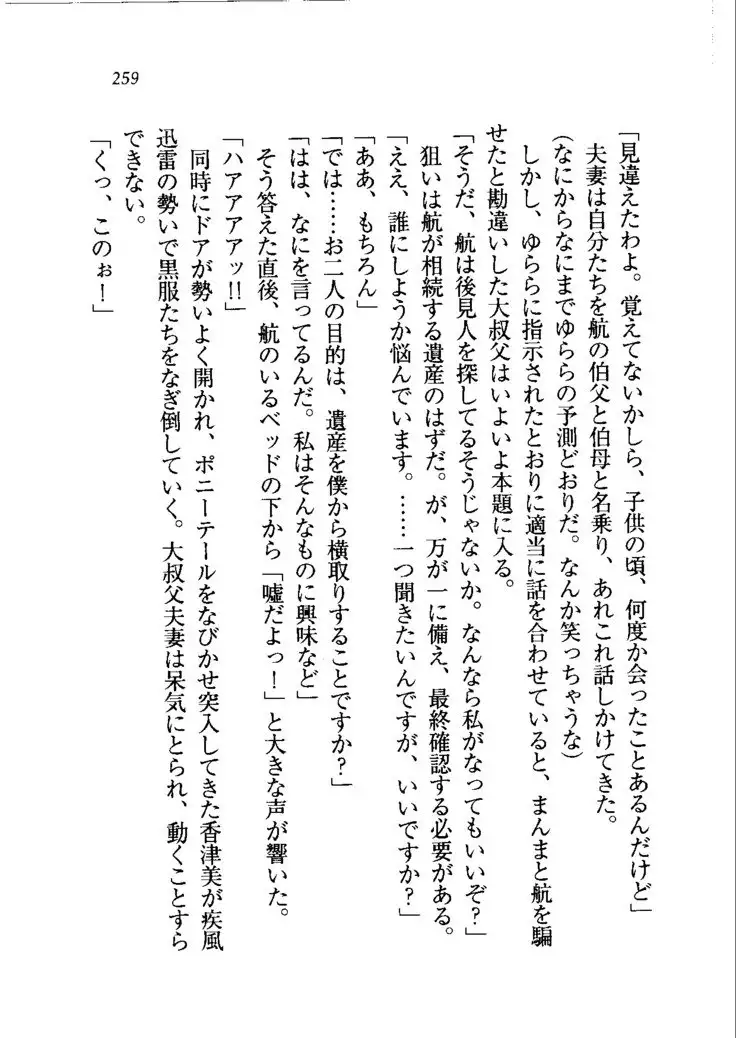 259
「見違えたわよ。覚えてないかしら、子供の頃、何度か会ったことあるんだけど」
夫妻は自分たちを航の伯父と伯母と名乗り、あれこれ話しかけてきた。
(なにからなにまでゆららの予測どおりだ。なんか笑っちゃうな)
しかし、ゆららに指示されたとおりに適当に話を合わせていると、まんまと航を騙
せたと勘違いした大叔父はいよいよ本題に入る。
「そうだ、航は後見人を探してるそうじゃないか。なんなら私がなってもいいぞ?」
狙いは航が相続する遺産のはずだ。が、万が一に備え、最終確認する必要がある。
「ええ、誰にしようか悩んでいます。……一つ聞きたいんですが、いいですか?」
「ああ、もちろん」
「では……お二人の目的は、遺産を僕から横取りすることですか?」
「はは、なにを言ってるんだ。私はそんなものに興味など」
そう答えた直後、航のいるベッドの下から「嘘だよっ!」と大きな声が響いた。
「ハアアアアッ!!」
同時にドアが勢いよく開かれ、ポニーテールをなびかせ突入してきた香津美が疾風
迅雷の勢いで黒服たちをなぎ倒していく。大叔父夫妻は呆気にとられ、動くことすら
できない。
「くっ、このぉ!」